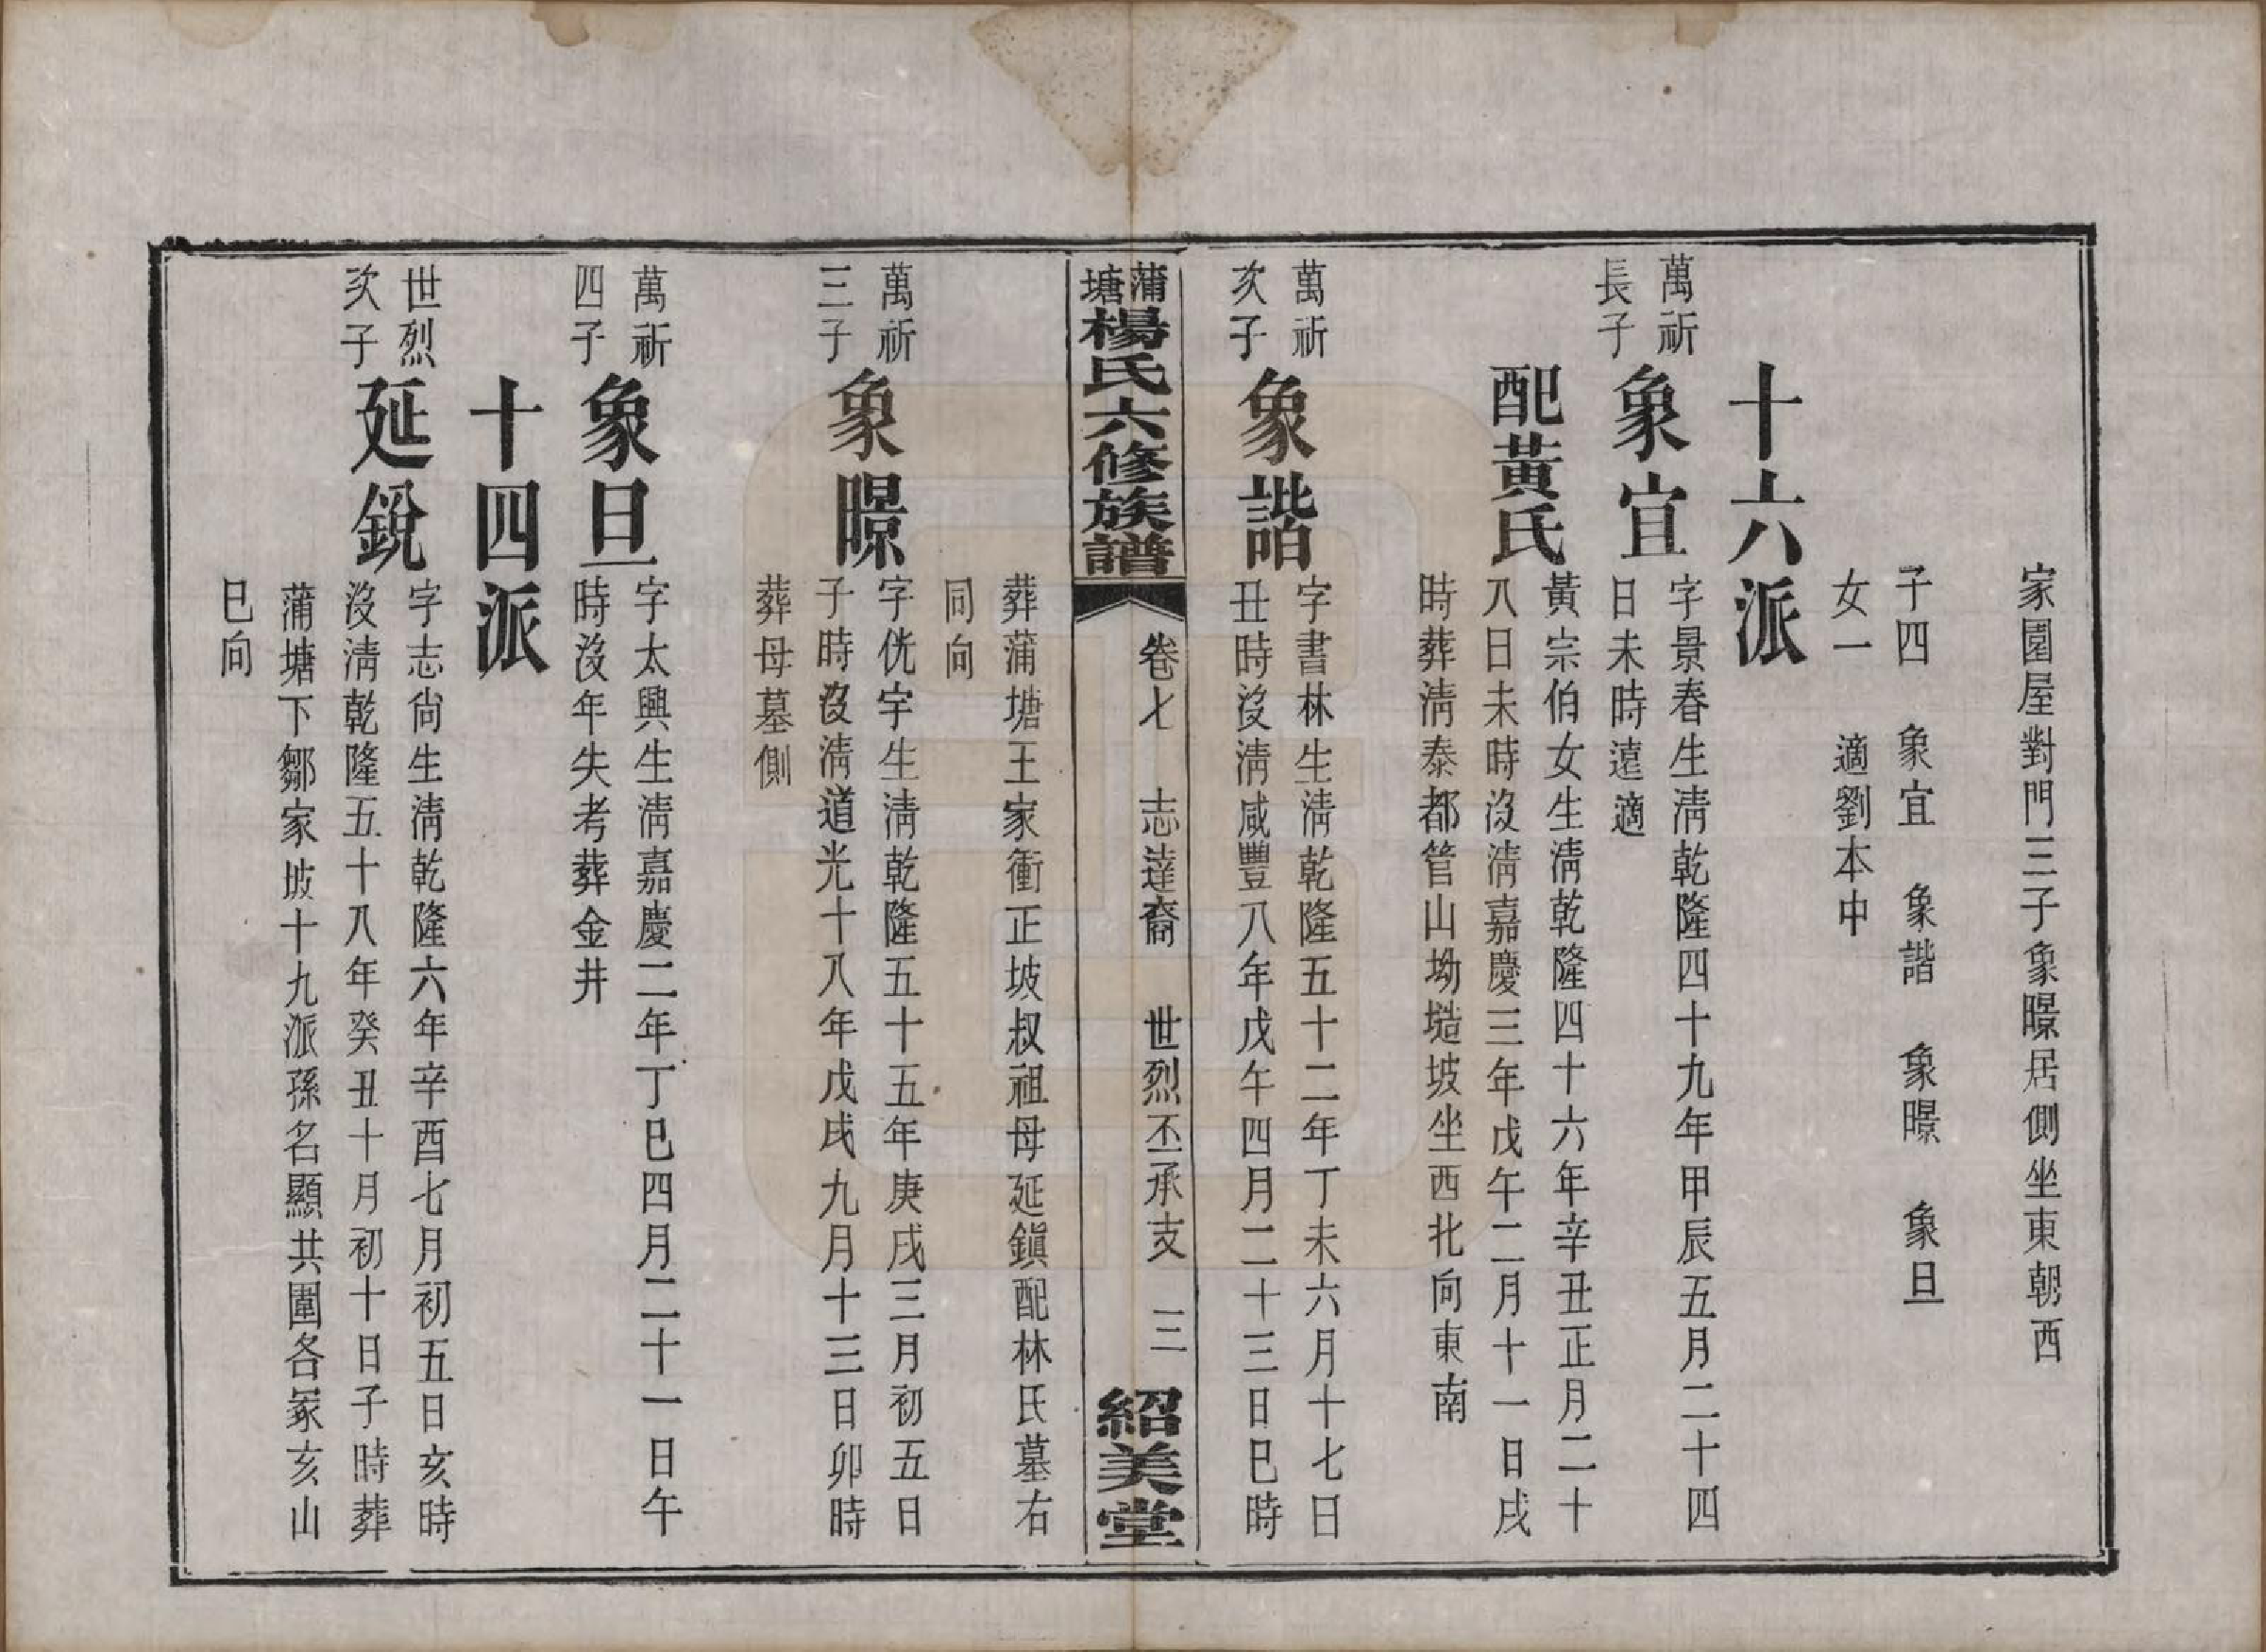 家園屋對門三子象暻居側坐東朝西
子四　象宜　象諧　象暻　象旦
女一　適劉本中
十六派
萬祈
長子
象宜
字景春生淸乾隆四十九年甲辰五月二十四
日未時遠適
配黃氏
黃宗伯女生淸乾隆四十六年辛丑正月二十
八日未時沒淸嘉慶三年戊午二月十一日戌
時葬淸泰都管山坳塙坡坐西北向東南
萬祈
次子
象諧
字書林生淸乾隆五十二年丁未六月十七日
丑時沒淸咸豐八年戊午四月二十三日巳時
蒲塘楊氏六修族譜
卷七　志達裔　世烈丕承支　三
紹美堂
葬蒲塘王家衝正坡叔祖母延鎭配林氏墓右
同向
萬祈
三子
象暻
字侊宇生淸乾隆五十五年庚戌三月初五日
子時沒淸道光十八年戊戌九月十三日卯時
葬母墓側
萬祈
四子
象旦
字太興生淸嘉慶二年丁巳四月二十一日午
時沒年失考葬金井
十四派
世烈
次子
延銳
字志尙生淸乾隆六年辛酉七月初五日亥時
沒淸乾隆五十八年癸丑十月初十日子時葬
蒲塘下鄒家坡十九派孫名顯共圍各冢亥山
巳向